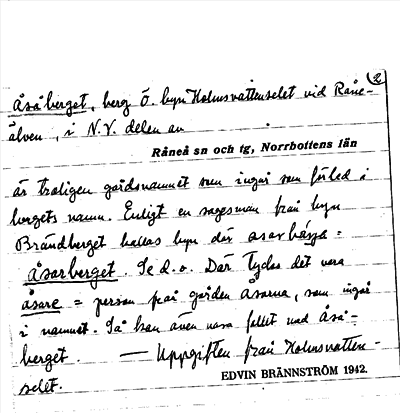 2
Åsåberget, berg Ö. byn Holmsvattenselet vid Råne-
älven, i N.V. delen av
Råneå sn och tg, Norrbottens län
är troligen gårdsnamnet som ingår som förled i
bergets namn. Enligt en sagesman från byn
Brändberget kallas byn där
Åsarberget. Se d.o. Där tydes det vara
åsare = person från gården Åsarna, som ingår
i namnet. Så kan även vara fallet med Åså-
berget. — Uppgiften från Holmsvatten-
selet.
EDVIN BRÄNNSTRÖM 1942.